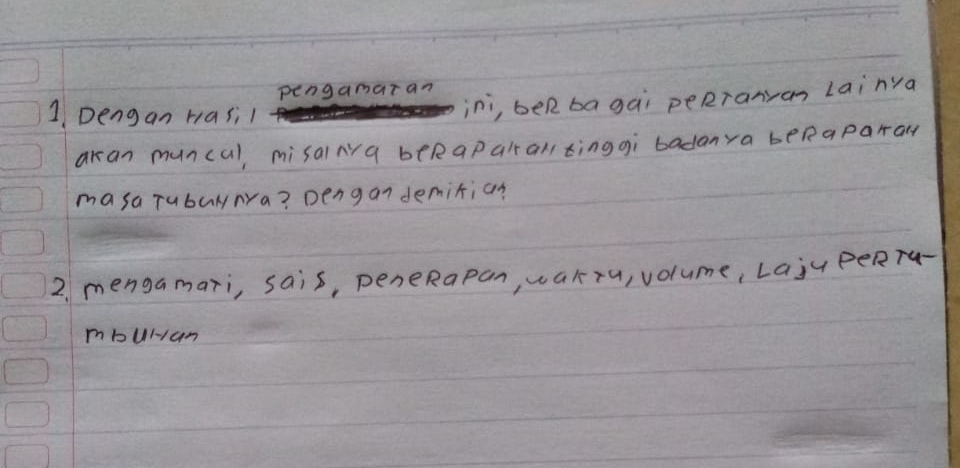 pengamatan
1. Dengan Hasil ini, berbagai pertanyan lainya
akan muncul, misalnya berapakah tinggi badanya berapakah
masa tubuhnya? Dengan demikian
2. mengamati, sais, penerapan, waktu, volume, Laju pertu-
mbuhan